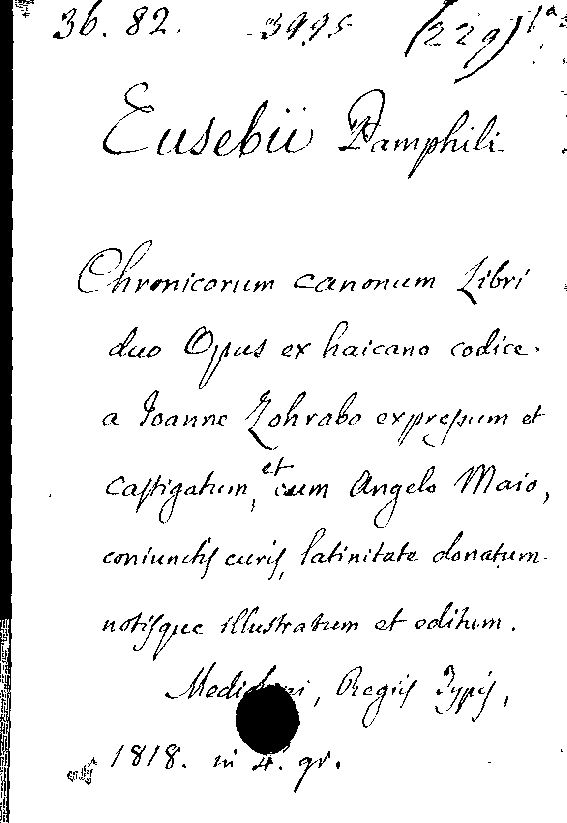 36. 82. 3995 (229)
Eusebii Pamphili
Chronicorum canonum Libri
duo Opus ex haicano codice
a Ioanne Zohrabo expreſsum et
caſtigatum, et cum Angelo Maio,
coniunctiſ curiſ, latinitate donatum
notiſque illustratum et editum.
Mediolani, Regiiſ Typiſ,
1818. in 4. gr.